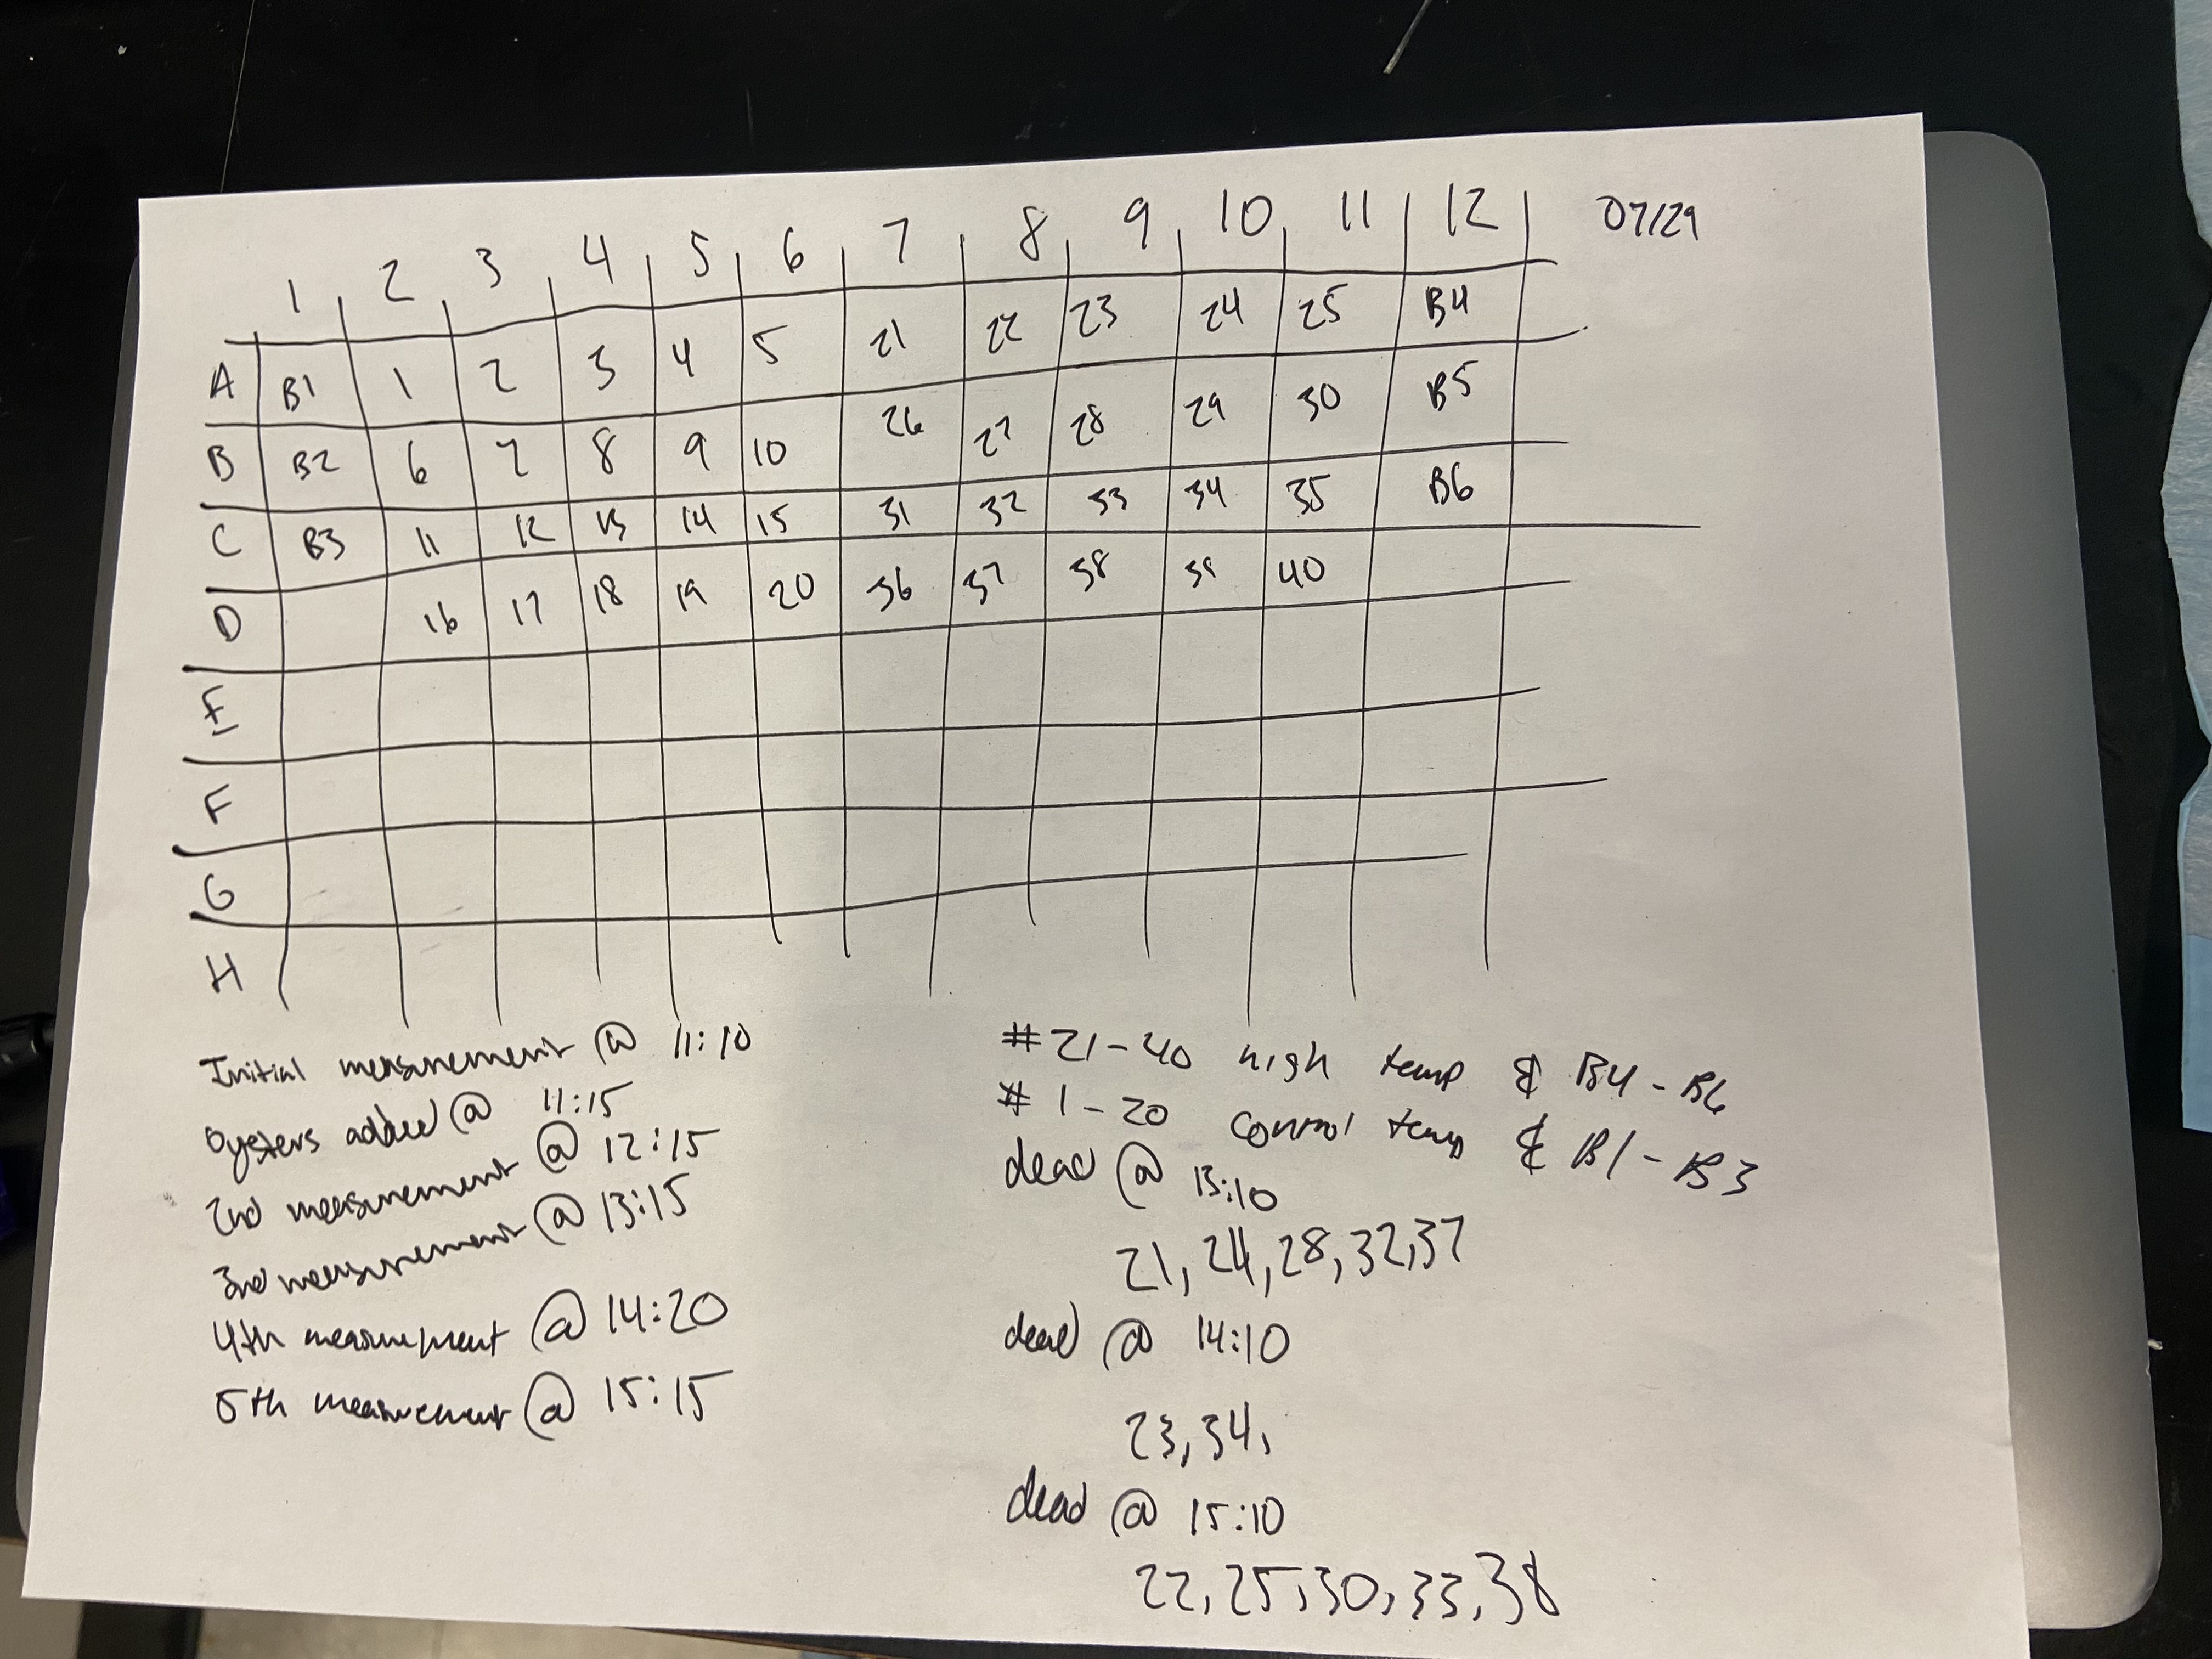 1 2 3 4 5 6 7 8 9 10 11 12 07/29
A B1 1 2 3 4 5 21 22 23 24 25 B4
B B2 6 7 8 9 10 26 27 28 29 30 B5
C B3 11 12 13 14 15 31 32 33 34 35 B6
D 16 17 18 19 20 36 37 38 39 40
E
F
G
H
Initial measurement @ 11:10
oysters added @ 11:15
2nd measurement @ 12:15
3rd measurement @ 13:15
4th measurement @ 14:20
5th measurement @ 15:15
#21-40 high temp & B4-B6
# 1-20 control temp & B1-B3
dead @ 13:10
21, 24, 28, 32, 37
dead @ 14:10
23, 34,
dead @ 15:10
22, 25, 30, 33, 38